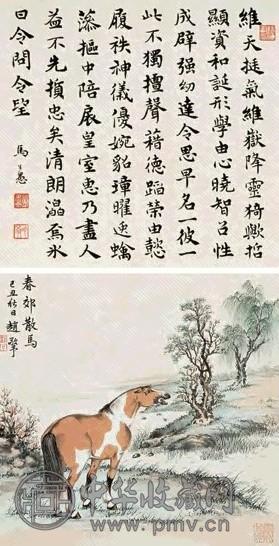 維天挺氣維降靈猗歟哲
顯資和誕形學由心曉智性
成璧强幼達令思早名一彼一
此不獨擅聲藉德蹈榮由懿
履袟神儀優婉貌璋曜逸
藻樞中陪展皇室忠乃盡人
益不先損忠矣清朗溫爲氷
曰令問令望 馬公愚
春郊散馬
己丑秋日趙
中华收藏网
www.pmv.cn